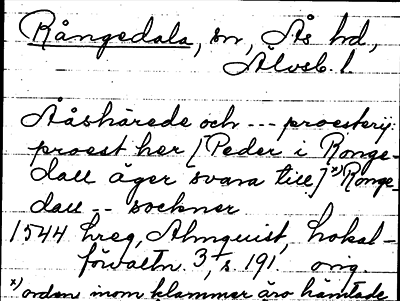 Rångedala, sn, Ås hd,
Älvsb. l.
Ååshärede och --- proestery:
proest her [Peder i Ronge-
dall äger svara till] x) Ronge-
dall -- sockner
1544 hreg, Almquist, Lokal-
förvaltn. 3, s. 191. orig.
x) orden inom klammer äro hämtade